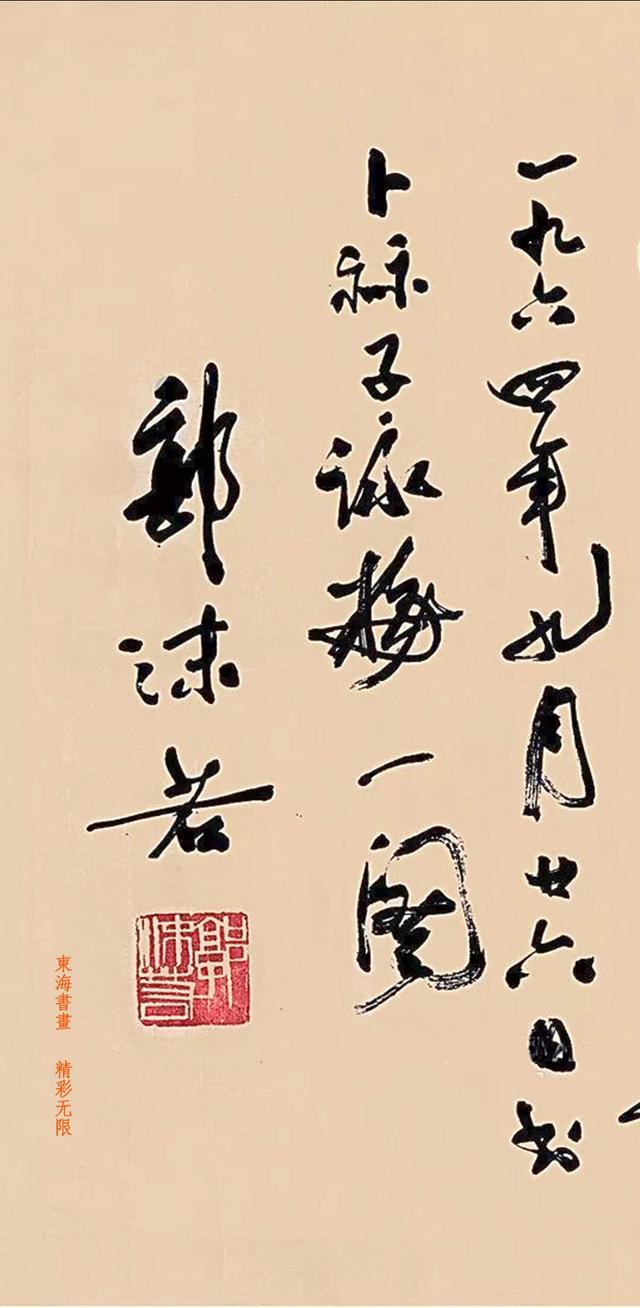 一九六四年九月廿六日书
卜祘子咏梅一阕
郭沫若
郭沫若
東海書畫 精彩无限